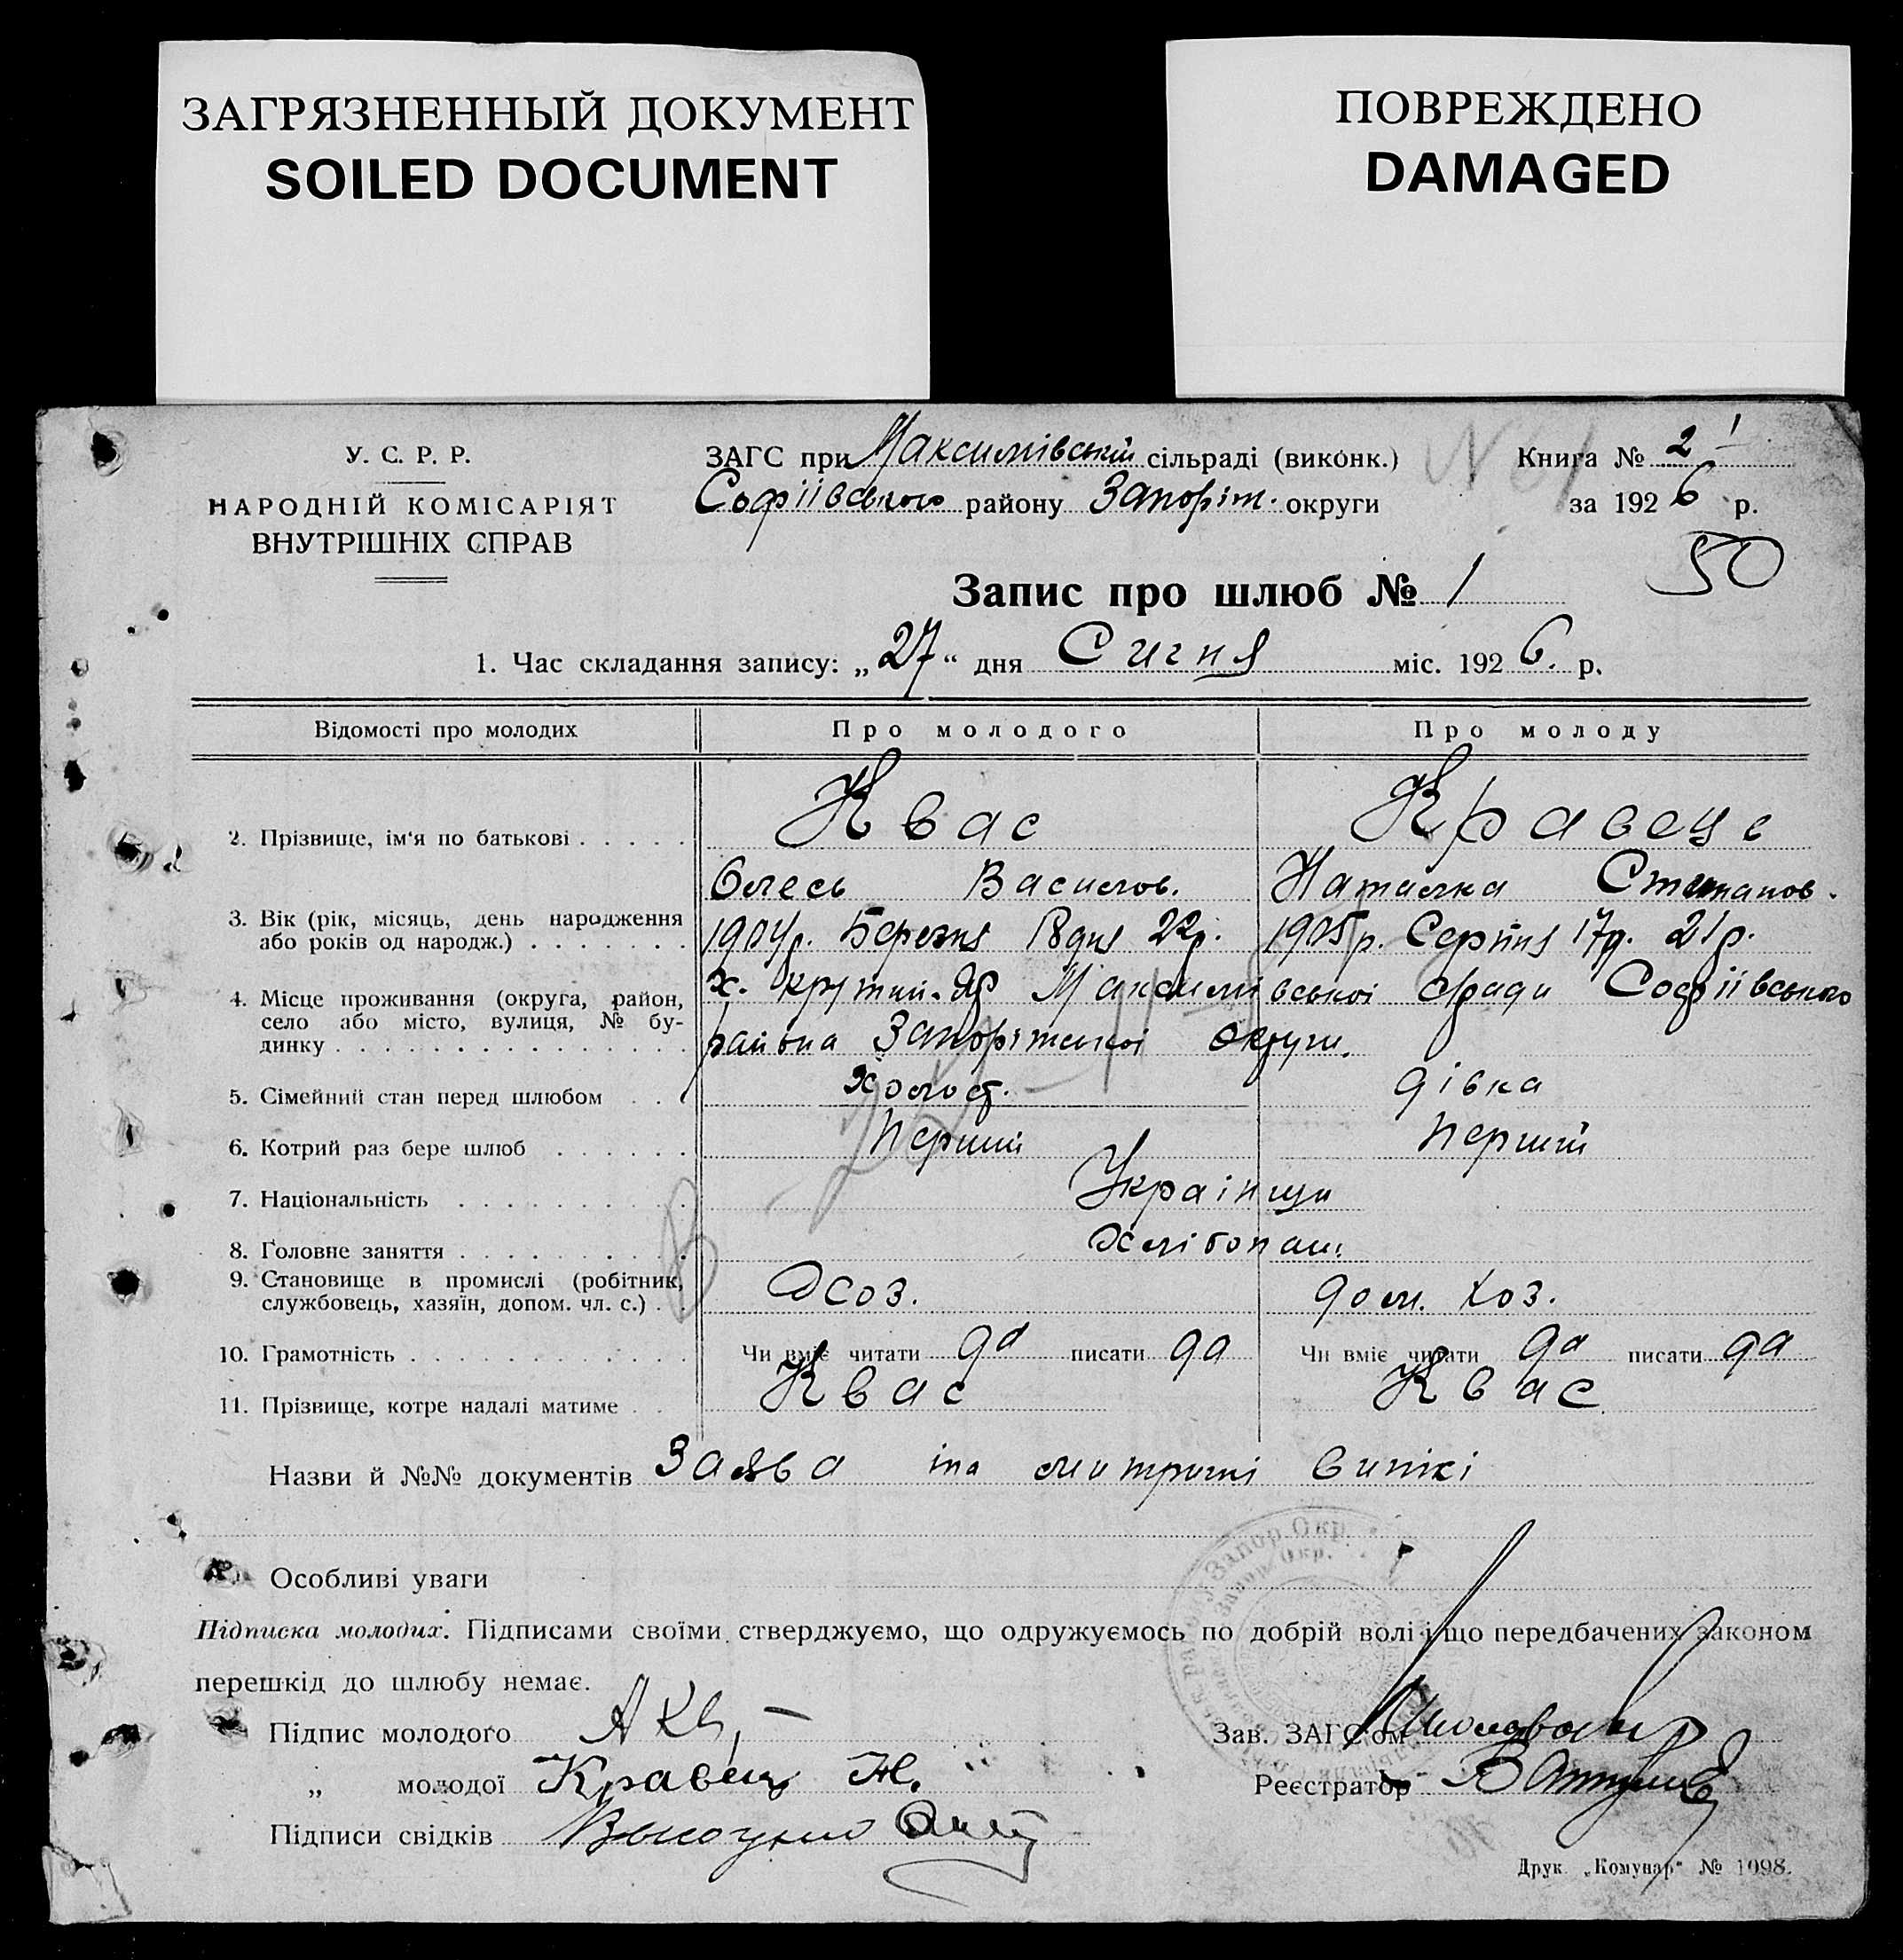 ЗАГРЯЗНЕННЫЙ ДОКУМЕНТ
SOILED DOCUMENT
ПОВРЕЖДЕНО
DAMAGED
У. С. Р. Р.
НАРОДНІЙ КОМІСАРІЯТ
ВНУТРІШНІХ СПРАВ
ЗАГС при Максимівській сільраді (виконк.)
Софіївського району Запоріж. округи
Книга № 2
за 1926 р.
50
Запис про шлюб № 1
1. Час складання запису: „27“ дня Сичня міс. 1926. р.
Відомості про молодих Про молодого Про молоду
2. Прізвище, ім'я по батькові Квас Кравець
Олесь Васильов. Наталка Степанов.
3. Вік (рік, місяць, день народження або років од народж.) 1904р. Березня 18дня 22р. 1905р. Серпня 17д. 21р.
4. Місце проживання (округа, район, село або місто, вулиця, № будинку х. Крутий-Яр Максимівської с/ради Софіївського
района Запоріжської округи.
5. Сімейний стан перед шлюбом холост. дівка
6. Котрий раз бере шлюб перший перший
7. Національність Українци
8. Головне заняття Хлібопаш.
9. Становище в промислі (робітник, службовець, хазяїн, допом. чл. с.) хоз. дом. хоз.
10. Грамотність Чи вміє читати да писати да Чи вміє читати да писати да
11. Прізвище, котре надалі матиме Квас Квас
Назви й №№ документів Заява та метричні випіскі
Особливі уваги
Підписка молодих. Підписами своїми стверджуємо, що одружуємось по добрій волі і що передбачених законом
перешкід до шлюбу немає.
Підпис молодого А Кв
„ молодої Кравець Н.
Підписи свідків
Зав. ЗАГС'ом
Реєстратор
Друк. „Комунар“ № 1098.